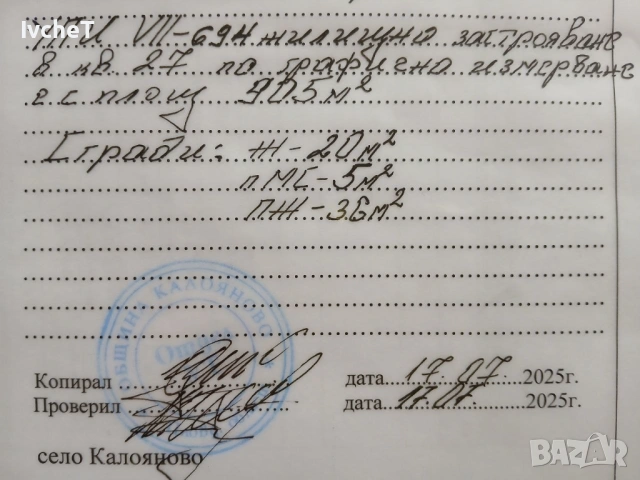 IvcheT
УПИ VIII-694 жилищно застрояване
в кв 27 по графично измерване
е с площ 905 м²
Сгради: Ж-20м²
пМС-5м²
ПЖ-36м²
ОБЩИНА КАЛОЯНОВО
Копирал дата 17.07 2025г.
Проверил дата 17.07 2025г.
село Калояново
BAZAR